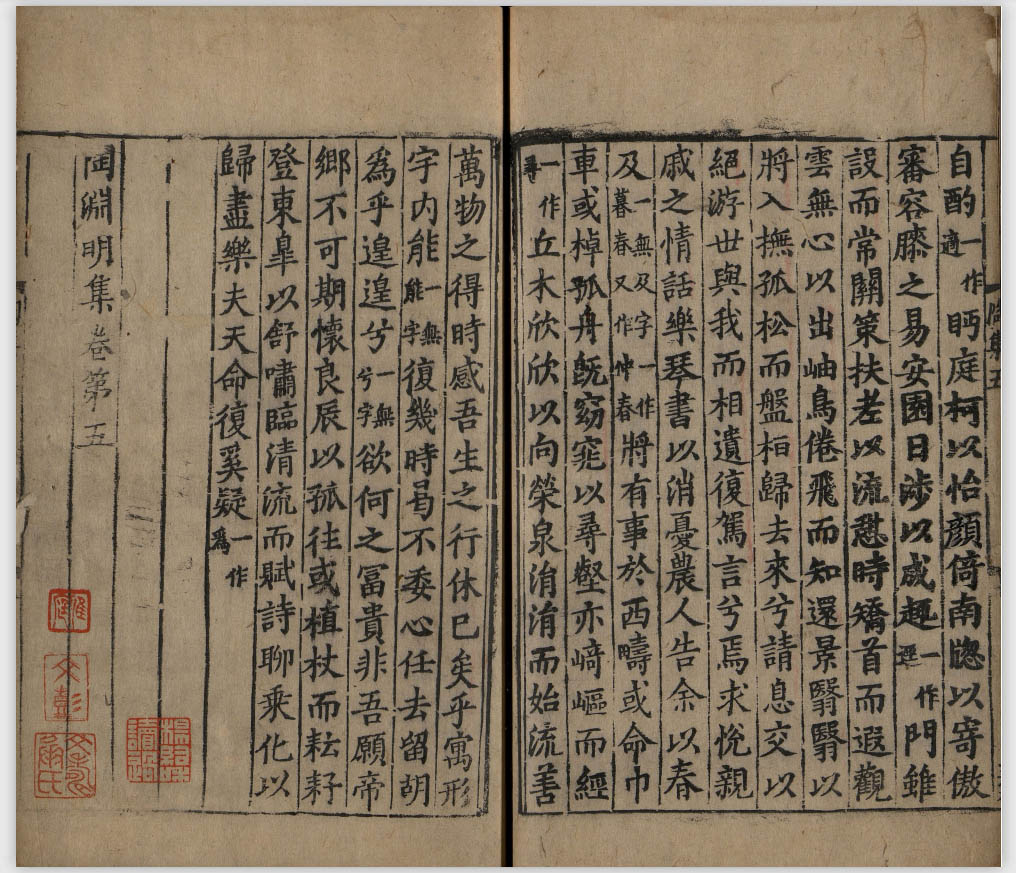 自酌一作適眄庭柯以怡顏倚南牕以寄傲
審容膝之易安園日涉以成趣一作逕門雖
設而常關策扶老以流憩時矯首而遐觀
雲無心以出岫鳥倦飛而知還景翳翳以
將入撫孤松而盤桓歸去來兮請息交以
絕游世與我而相遺復駕言兮焉求悅親
戚之情話樂琴書以消憂農人告余以春
及一無及字一作暮春又作仲春將有事於西疇或命巾
車或棹孤舟旣窈窕以尋壑亦崎嶇而經
一作尋丘木欣欣以向榮泉涓涓而始流善
萬物之得時感吾生之行休已矣乎寓形
宇内能一無能字復幾時曷不委心任去留胡
爲乎遑遑兮一無兮字欲何之冨貴非吾願帝
鄉不可期懷良辰以孤往或植杖而耘耔
登東皐以舒嘯臨清流而賦詩聊乘化以
歸盡樂夫天命復奚疑一作爲
陶淵明集卷第五
文彭